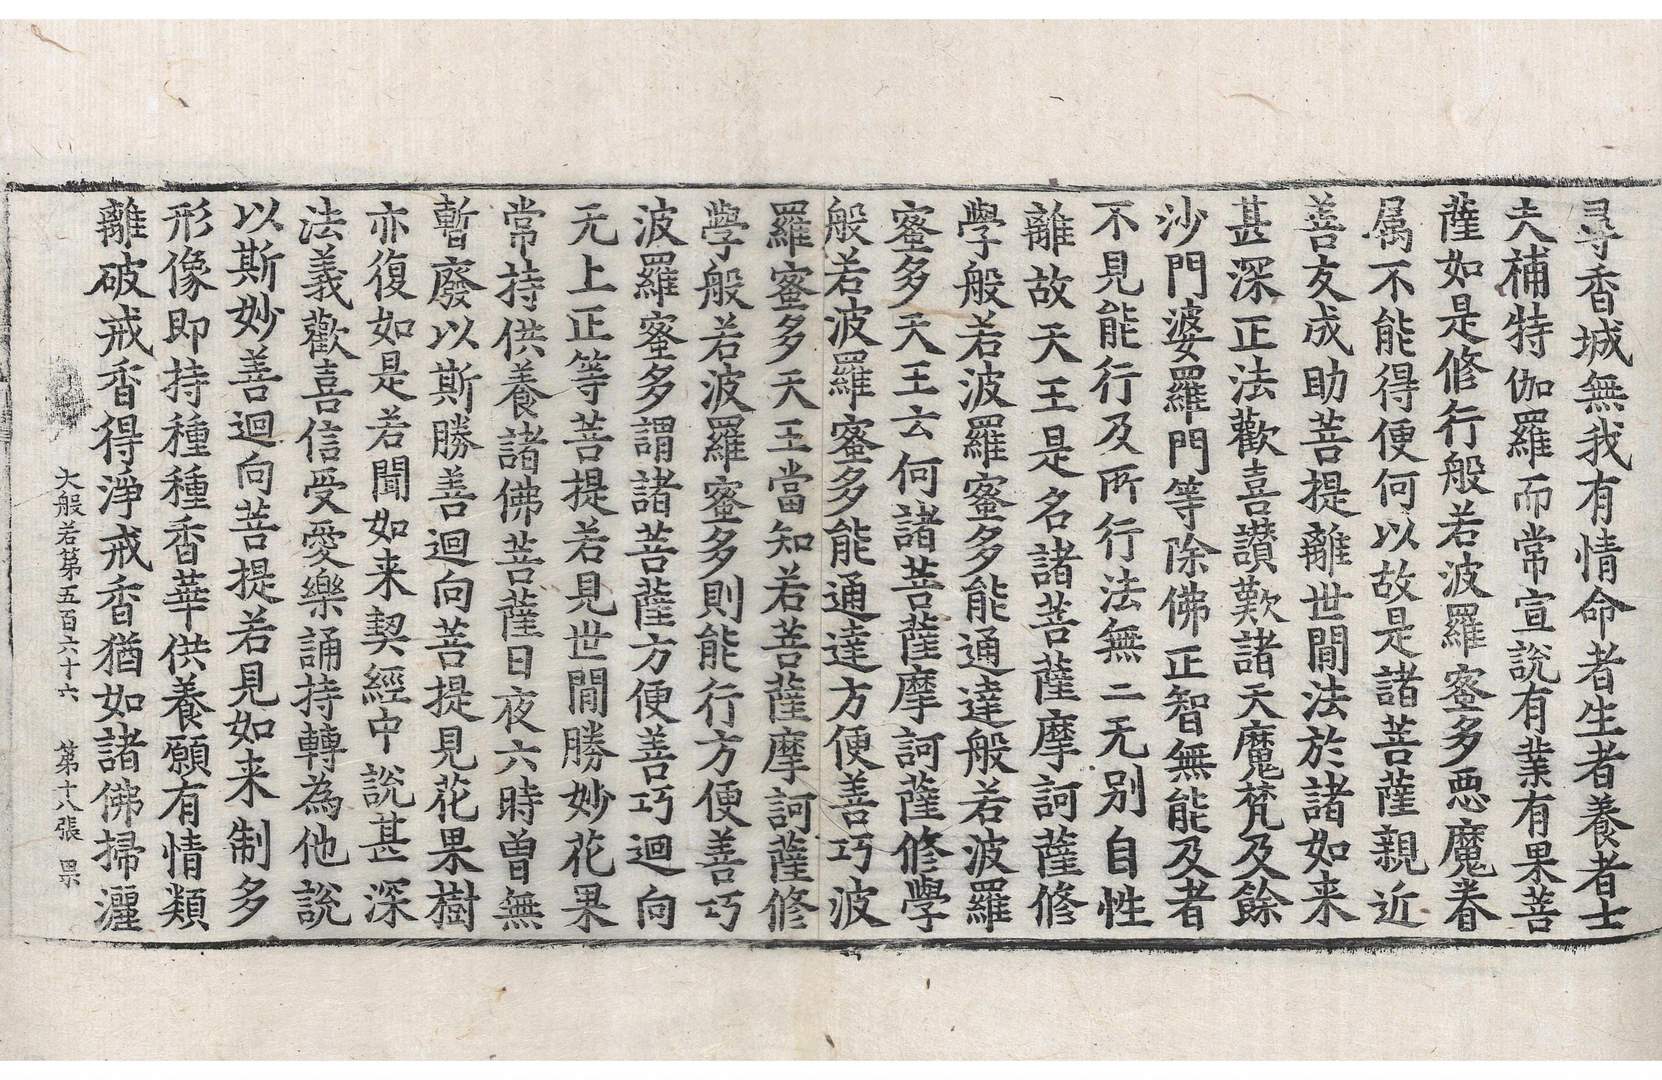 尋香城無我有情命者生者養者士
夫補特伽羅而常宣說有業有果菩
薩如是修行般若波羅蜜多惡魔眷
属不能得便何以故是諸菩薩親近
善友成助菩提離世間法於諸如来
甚深正法歡喜讃歎諸天魔梵及餘
沙門婆羅門等除佛正智無能及者
不見能行及所行法無二无别自性
離故天王是名諸菩薩摩訶薩修
學般若波羅蜜多能通達般若波羅
蜜多天王云何諸菩薩摩訶薩修學
般若波羅蜜多能通達方便善巧波
羅蜜多天王當知若菩薩摩訶薩修
學般若波羅蜜多則能行方便善巧
波羅蜜多謂諸菩薩方便善巧迴向
无上正等菩提若見世間勝妙花果
常持供養諸佛菩薩日夜六時曾無
暫廢以斯勝善迴向菩提見花果樹
亦復如是若聞如来契經中說甚深
法義歡喜信受愛樂誦持轉為他說
以斯妙善迴向菩提若見如来制多
形像即持種種香華供養願有情類
離破戒香得淨戒香猶如諸佛掃灑
大般若第五百六十六 第十八張 果